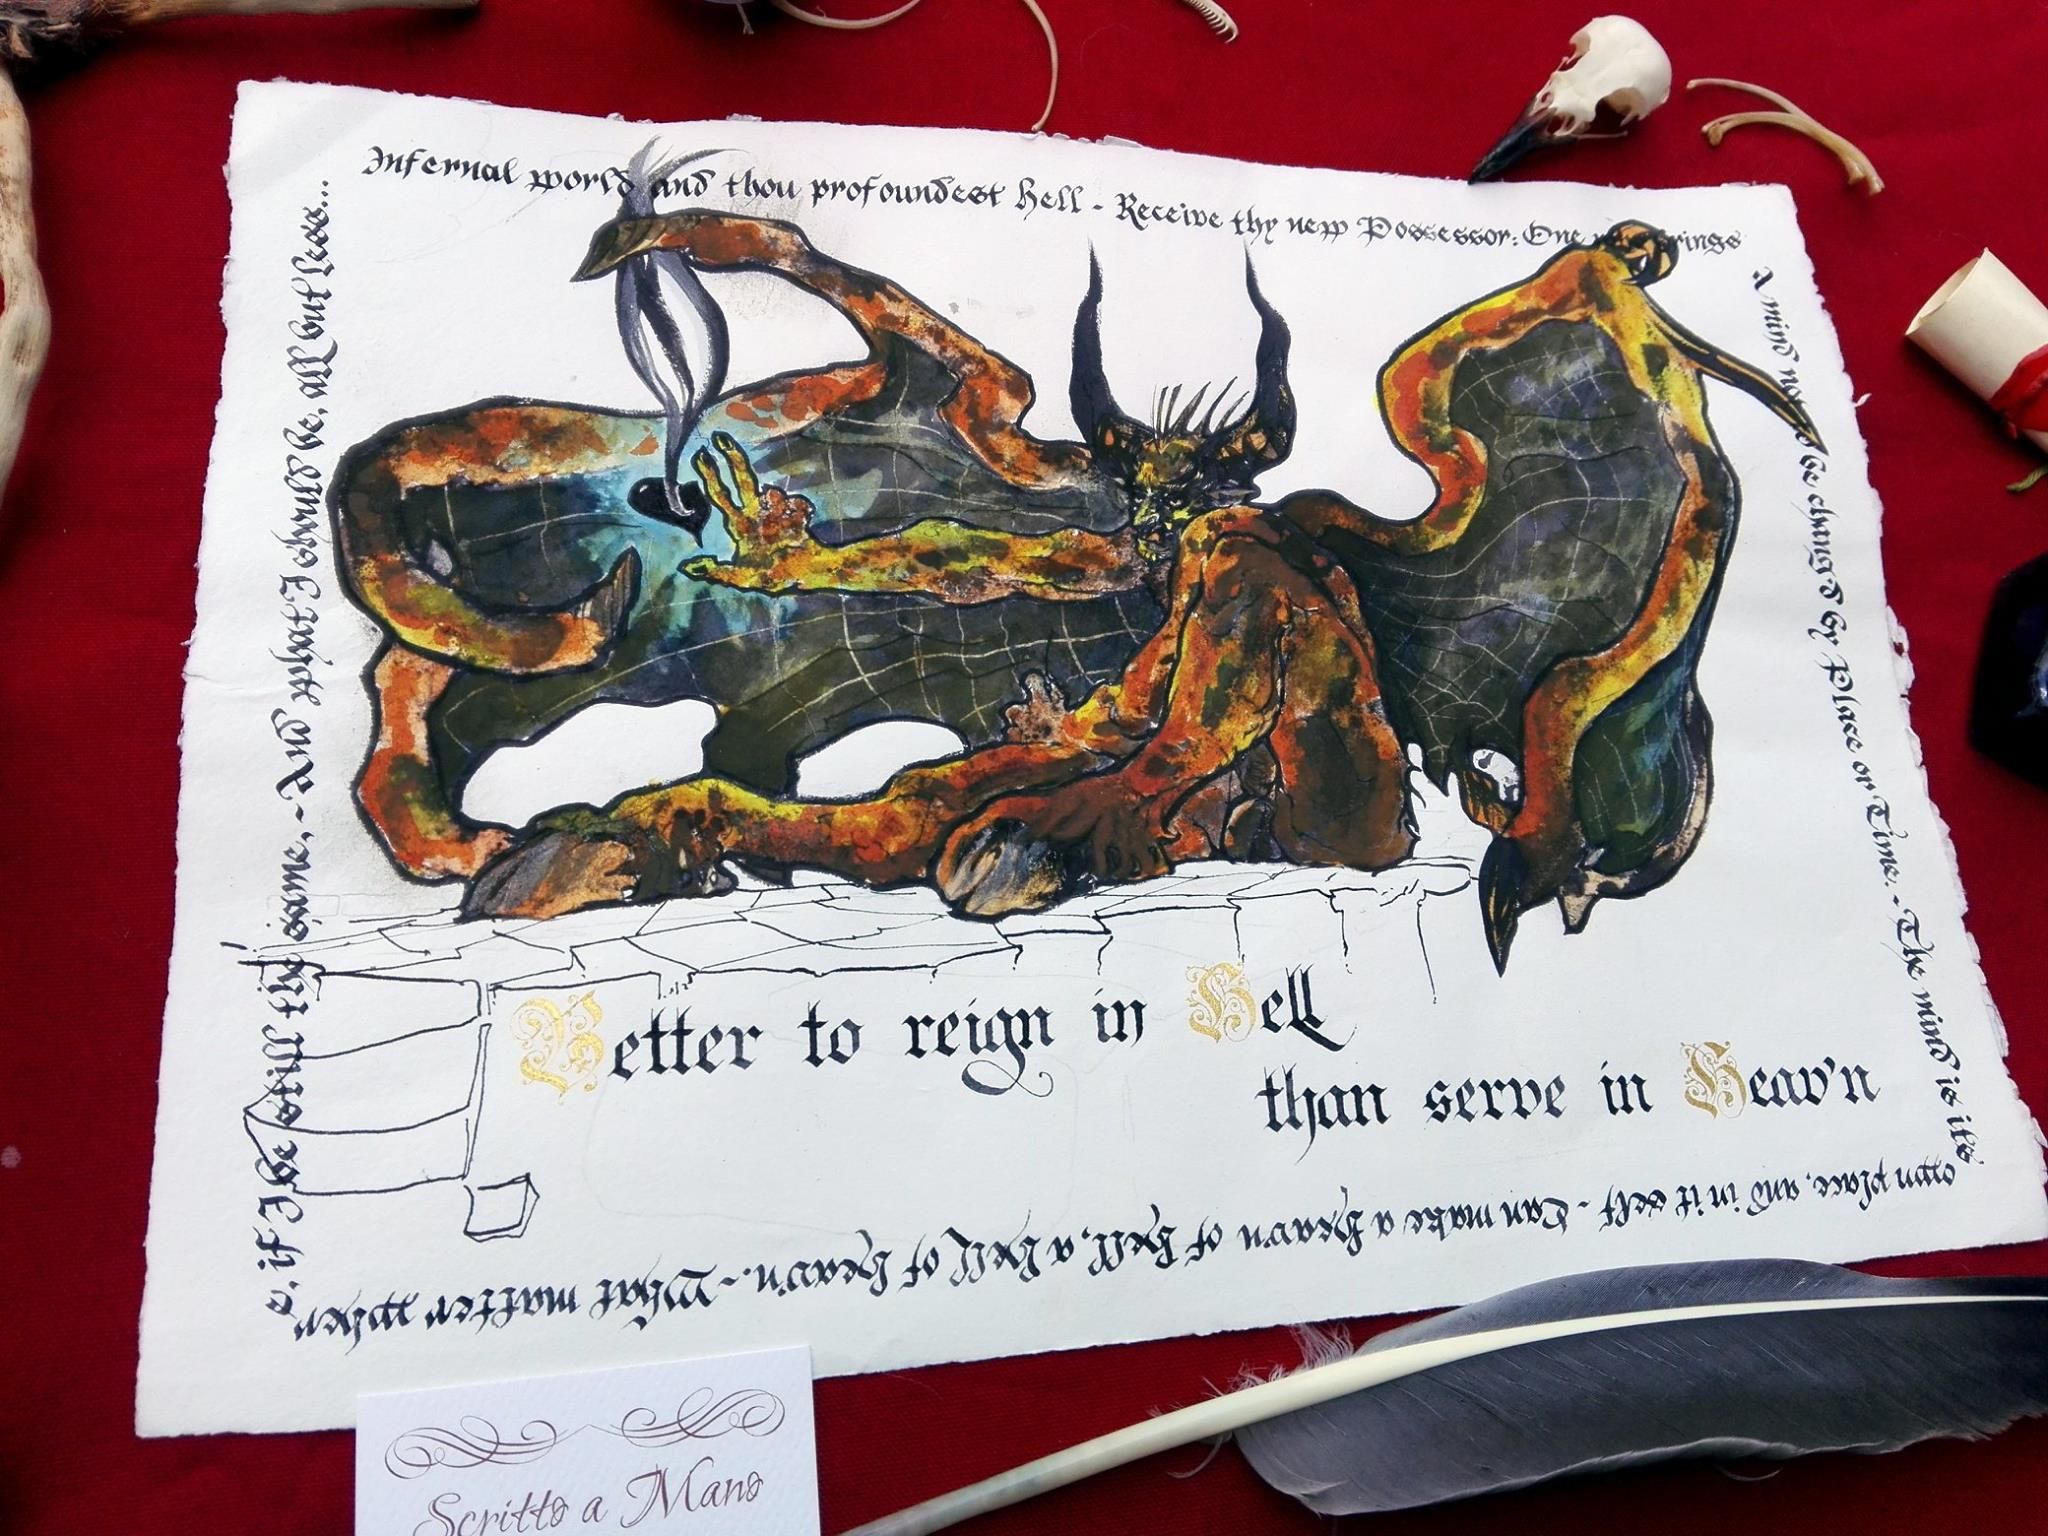 Infernal world and thou profoundest hell - Receive thy new Possessor: One who brings
A mind not to be chang'd by Place or Time. - The mind is its
own place, and in it self - Can make a heav'n of hell, a hell of heav'n. - What matter wher
e, if I be still the same, - And what I should be, all but less...
Better to reign in Hell
than serve in Heav'n
Scritto a Mano